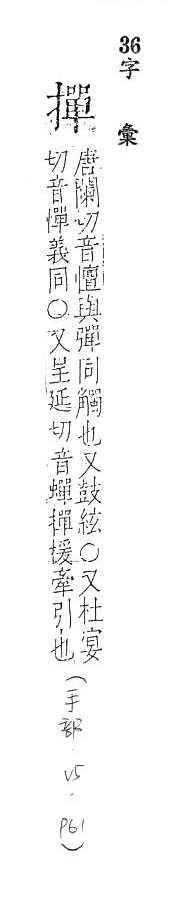 36字彙
撣
唐闌切音壇與彈同觸也又鼓絃○又杜宴
切音憚義同○又呈延切音蟬撣援牽引也(手部.V5.P61)